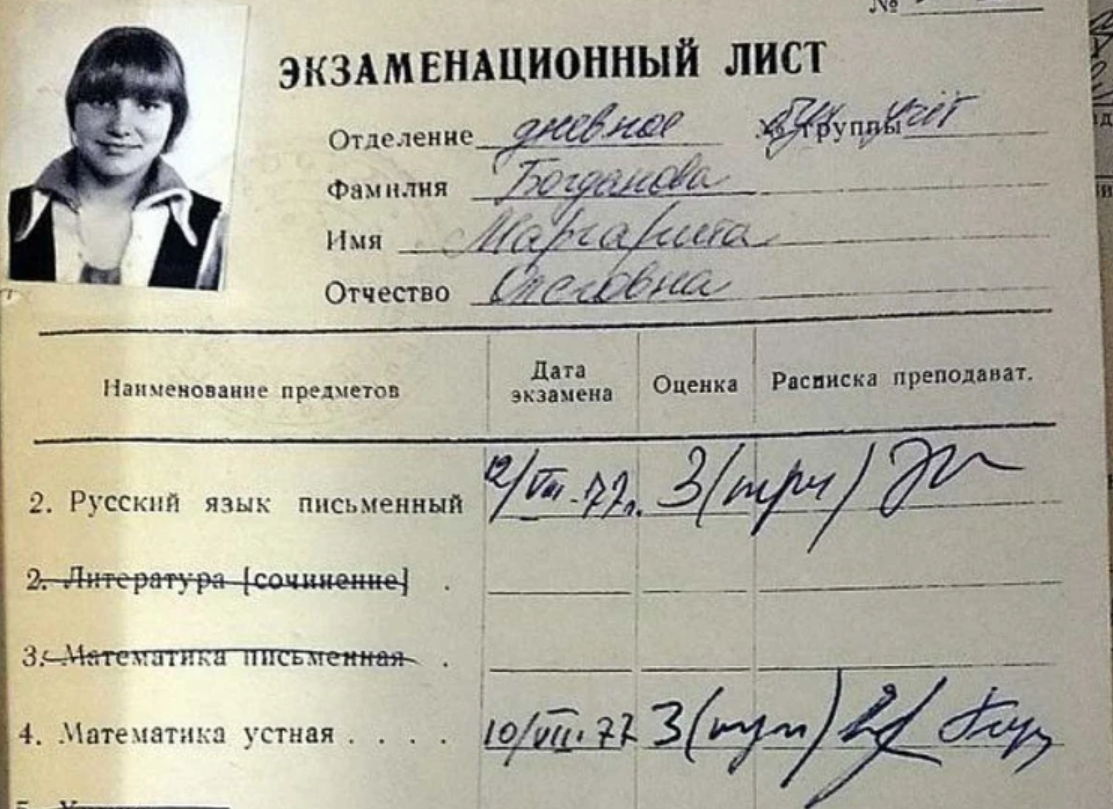 №
ЭКЗАМЕНАЦИОННЫЙ ЛИСТ
Отделение дневное № группы бух учёт
Фамилия Богданова
Имя Маргарита
Отчество Олеговна
Наименование предметов Дата экзамена Оценка Расписка преподават.
2. Русский язык письменный 12/VIII-77г. 3(три)
2. Литература [сочинение] .
3. Математика письменная .
4. Математика устная . . . . 10/VIII-77 3(три)
5.